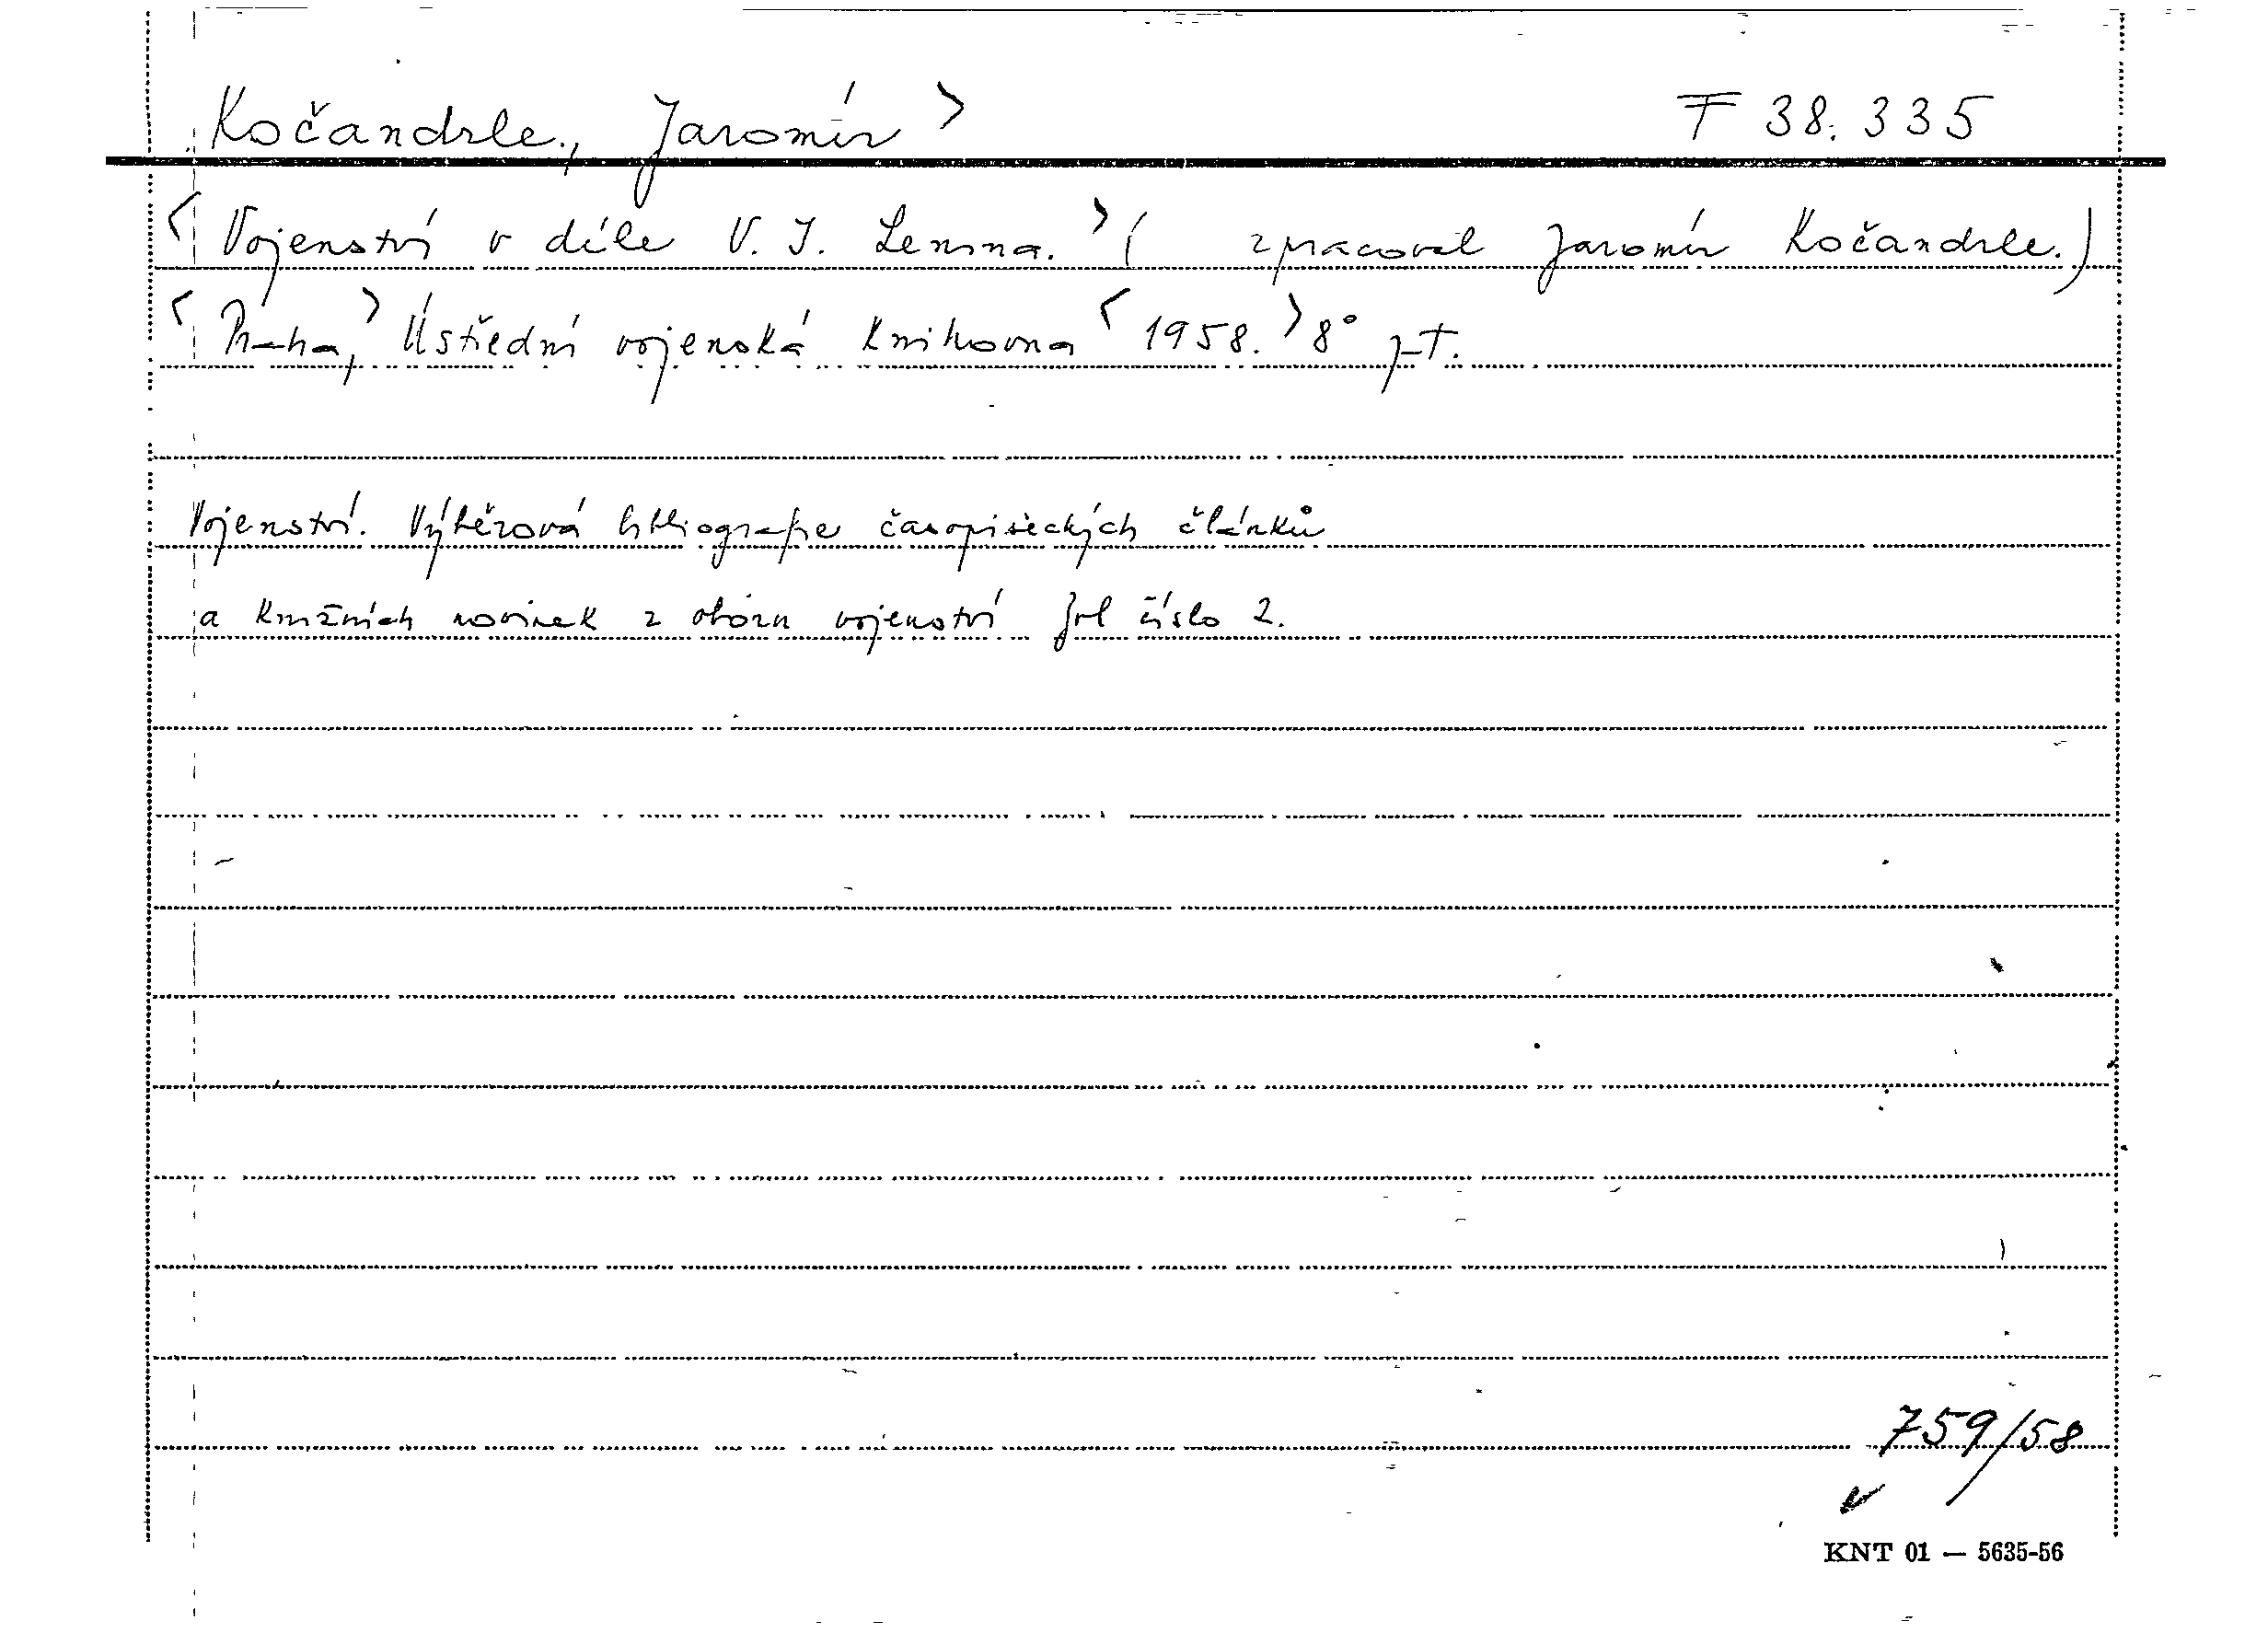 Kočandrle, Jaromír > F 38.335
< Vojenství v díle V. I. Lenina. > ( zpracoval Jaromír Kočandrle.)
< Praha, > Ústřední vojenská knihovna < 1958. > 8°
Vojenství. Výběrová bibliografie časopiseckých článků
a knižních novinek z oboru vojenství číslo 2.
759/58
KNT 01 — 5635-56